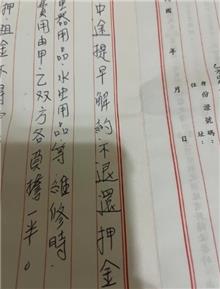 身份證號碼:
住址:
國 年 月 日
中途提早解約不退還押金
電器用品、水电用品等維修時
費用由甲、乙双方各負擔一半。
押租金不得